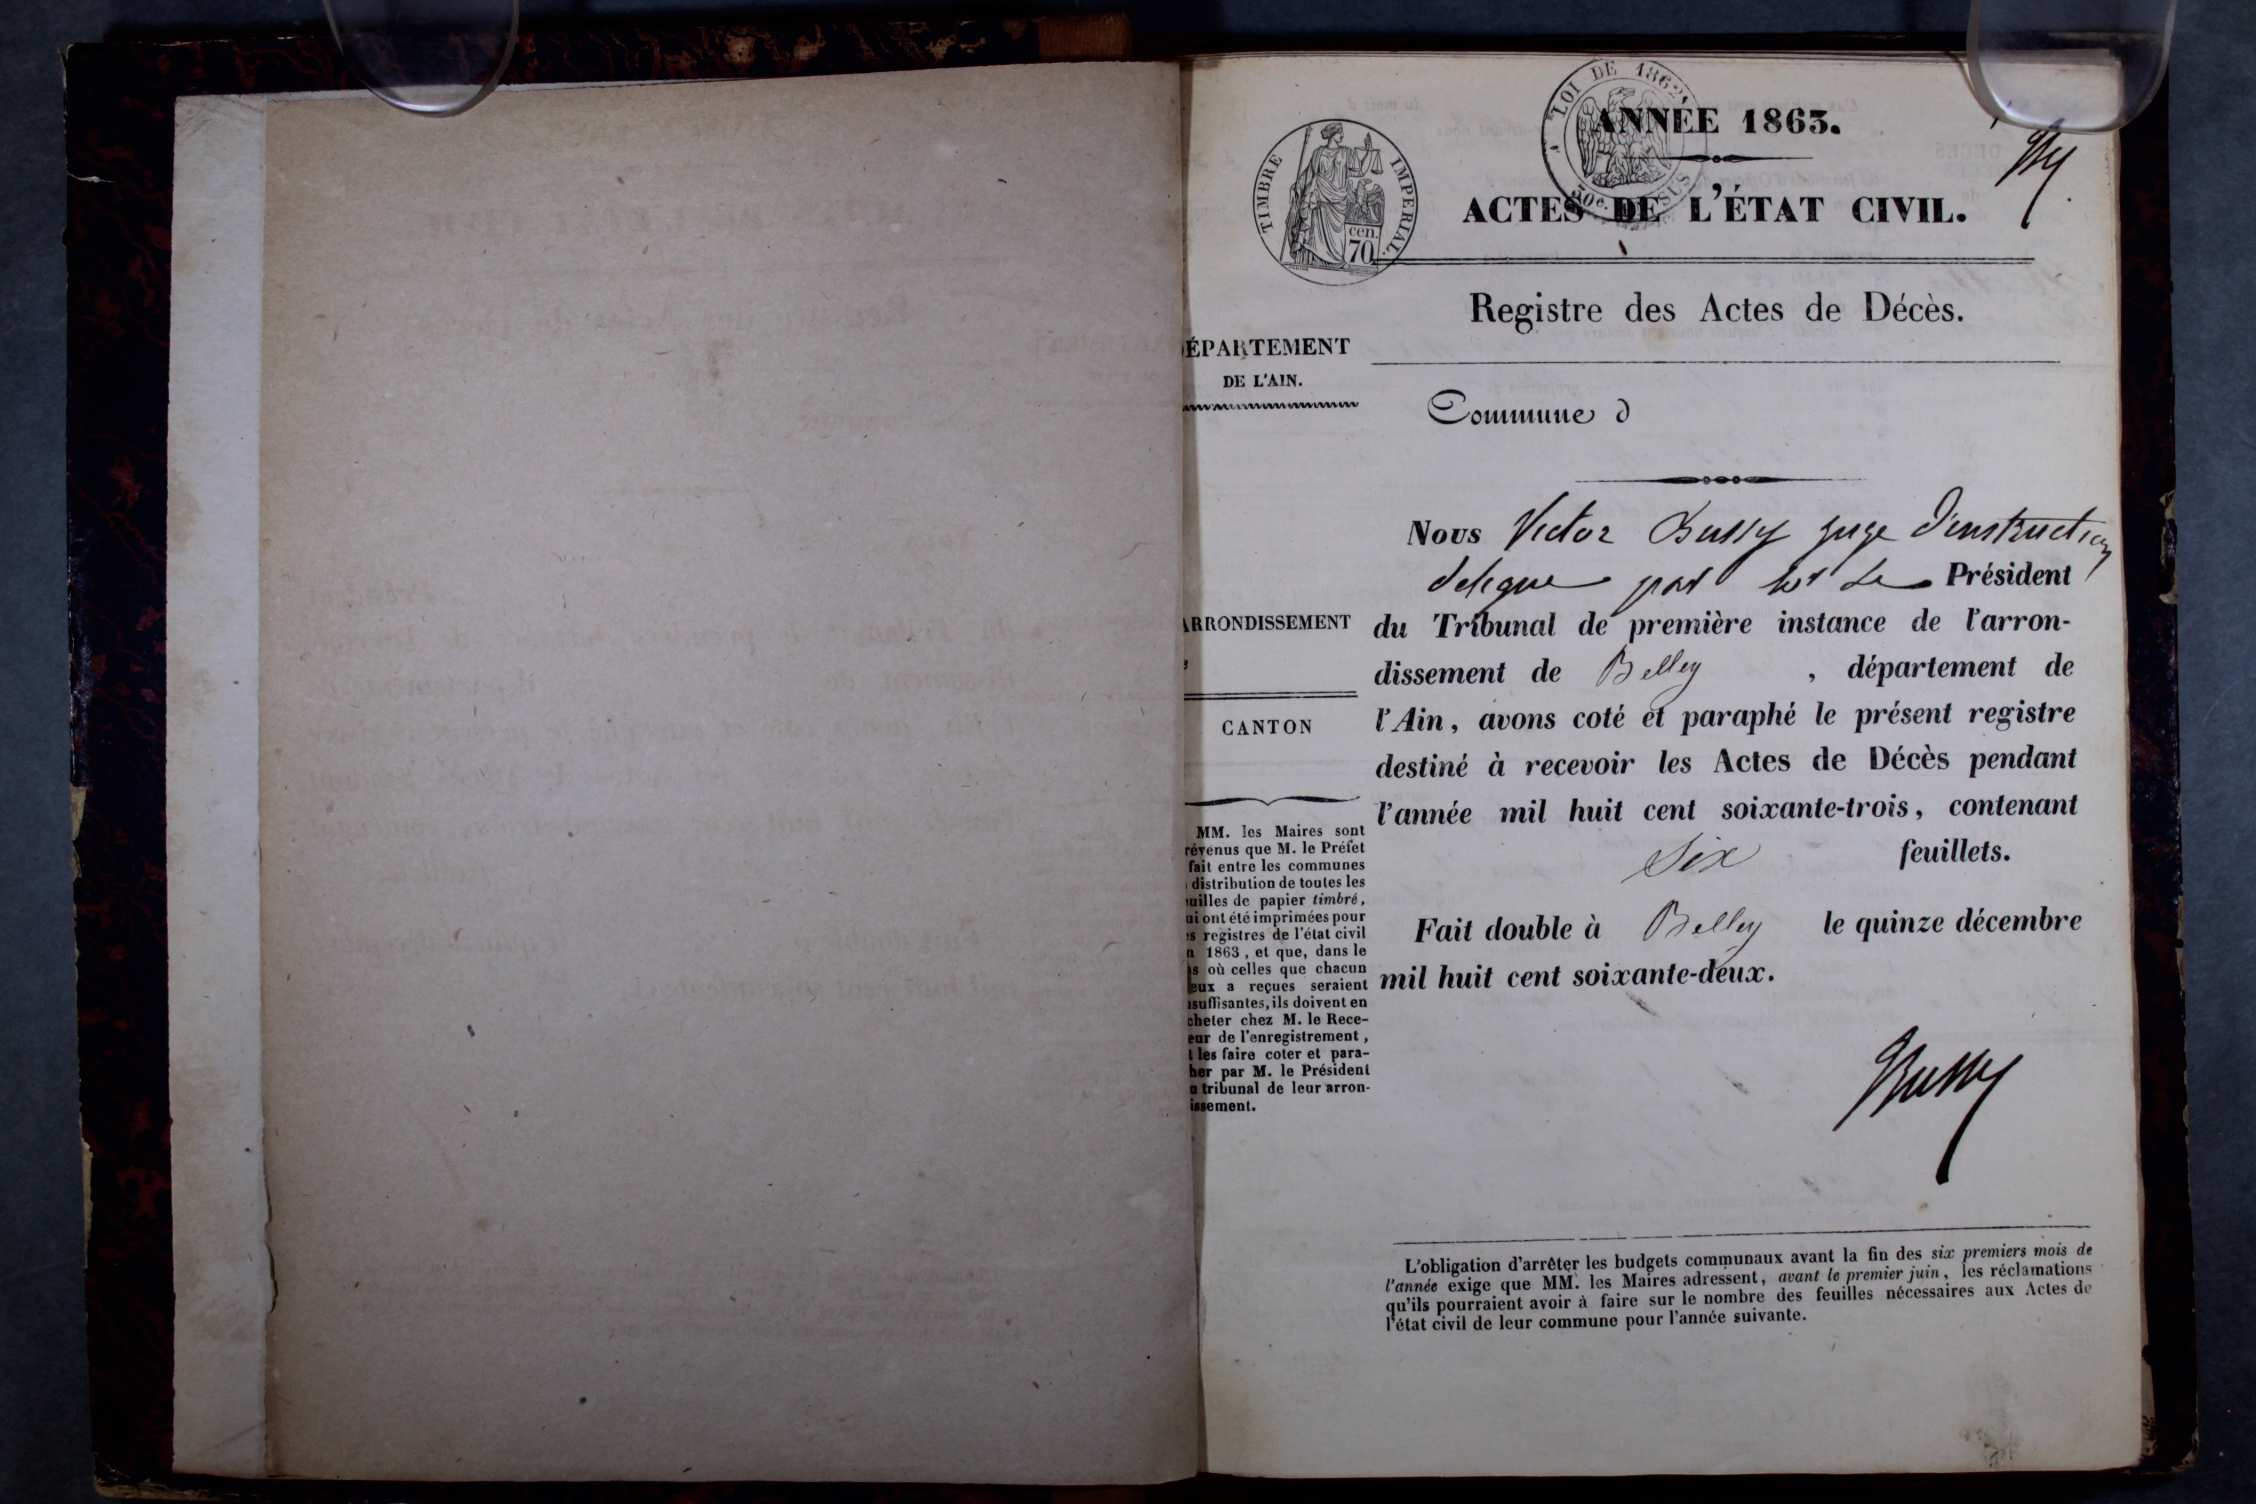 LOI DE 1862
ANNÉE 1863.
TIMBRE IMPERIAL
cen.
70
30c. SUS
ACTES DE L'ÉTAT CIVIL.
Registre des Actes de Décès.
ÉPARTEMENT
DE L'AIN.
Commune d
Nous Victor Bussy juge d'instruction
delegue par Mr Le Président
ARRONDISSEMENT
du Tribunal de première instance de l'arron-
dissement de Belley , département de
CANTON
l'Ain, avons coté et paraphé le présent registre
destiné à recevoir les Actes de Décès pendant
l'année mil huit cent soixante-trois, contenant
Six feuillets.
Fait double à Belley le quinze décembre
mil huit cent soixante-deux.
Bussy
MM. les Maires sont
révenus que M. le Préfet
fait entre les communes
distribution de toutes les
uilles de papier timbré,
ui ont été imprimées pour
s registres de l'état civil
n 1863, et que, dans le
s où celles que chacun
eux a reçues seraient
suffisantes, ils doivent en
cheter chez M. le Rece-
eur de l'enregistrement,
t les faire coter et para-
her par M. le Président
u tribunal de leur arron-
issement.
L'obligation d'arrêter les budgets communaux avant la fin des six premiers mois de
l'année exige que MM. les Maires adressent, avant le premier juin, les réclamations
qu'ils pourraient avoir à faire sur le nombre des feuilles nécessaires aux Actes de
l'état civil de leur commune pour l'année suivante.